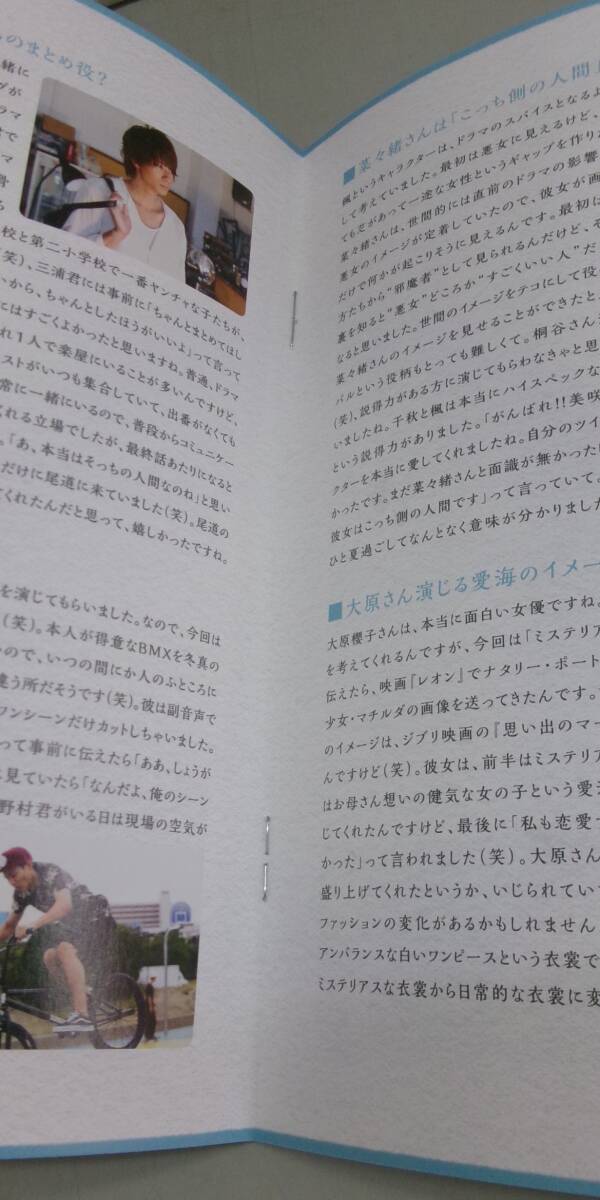 のまとめ役？
緒に
グが
ラマ
で
マ
骨
る
校と第二小学校で一番ヤンチャな子たちが、
(笑)、三浦君には事前に「ちゃんとまとめてほし
いから、ちゃんとしたほうがいいよ」って言って
にはすごくよかったと思いますね。普通、ドラマ
れ1人で楽屋にいることが多いんですけど、
ストがいつも集合していて、出番がなくても
常に一緒にいるので、普段からコミュニケー
れる立場でしたが、最終話あたりになると
。「あ、本当はそっちの人間なのね」と思い
だけに尾道に来ていました(笑)。尾道の
くれたんだと思って、嬉しかったですね。
を演じてもらいました。なので、今回は
(笑)。本人が得意なBMXを冬真の
いので、いつの間にか人のふところに
違う所だそうです(笑)。彼は副音声で
ワンシーンだけカットしちゃいました。
って事前に伝えたら「ああ、しょうが
に見ていたら「なんだよ、俺のシーン
野村君がいる日は現場の空気が
■菜々緒さんは「こっち側の人間」
楓というキャラクターは、ドラマのスパイスとなるよ
して考えていました。最初は悪女に見えるけど、
ても芯があって一途な女性というギャップを作りた
菜々緒さんは、世間的には直前のドラマの影響
悪女のイメージが定着していたので、彼女が画
だけで何かが起こりそうに見えるんです。最初は
方たちから“邪魔者”として見られるんだけど、そ
裏を知ると“悪女”どころか“すごくいい人”だ
なると思いました。世間のイメージをテコにして役
菜々緒さんのイメージを見せることができたと
バルという役柄もとっても難しくて。桐谷さん
(笑)、説得力がある方に演じてもらわなきゃと思
いましたね。千秋と楓は本当にハイスペックな
という説得力がありました。「がんばれ!!美咲
クターを本当に愛してくれましたね。自分のツイ
かったです。まだ菜々緒さんと面識が無かった
彼女はこっち側の人間です」って言っていて。
ひと夏過ごしてなんとなく意味が分かりました
■大原さん演じる愛海のイメー
大原櫻子さんは、本当に面白い女優ですね。
を考えてくれるんですが、今回は「ミステリア
伝えたら、映画『レオン』でナタリー・ポート
少女・マチルダの画像を送ってきたんです。
のイメージは、ジブリ映画の『思い出のマー
んですけど(笑)。彼女は、前半はミステリア
はお母さん想いの健気な女の子という愛
じてくれたんですけど、最後に「私も恋愛
かった」って言われました(笑)。大原さん
盛り上げてくれたというか、いじられてい
ファッションの変化があるかもしれません
アンバランスな白いワンピースという衣裳で
ミステリアスな衣裳から日常的な衣裳に変